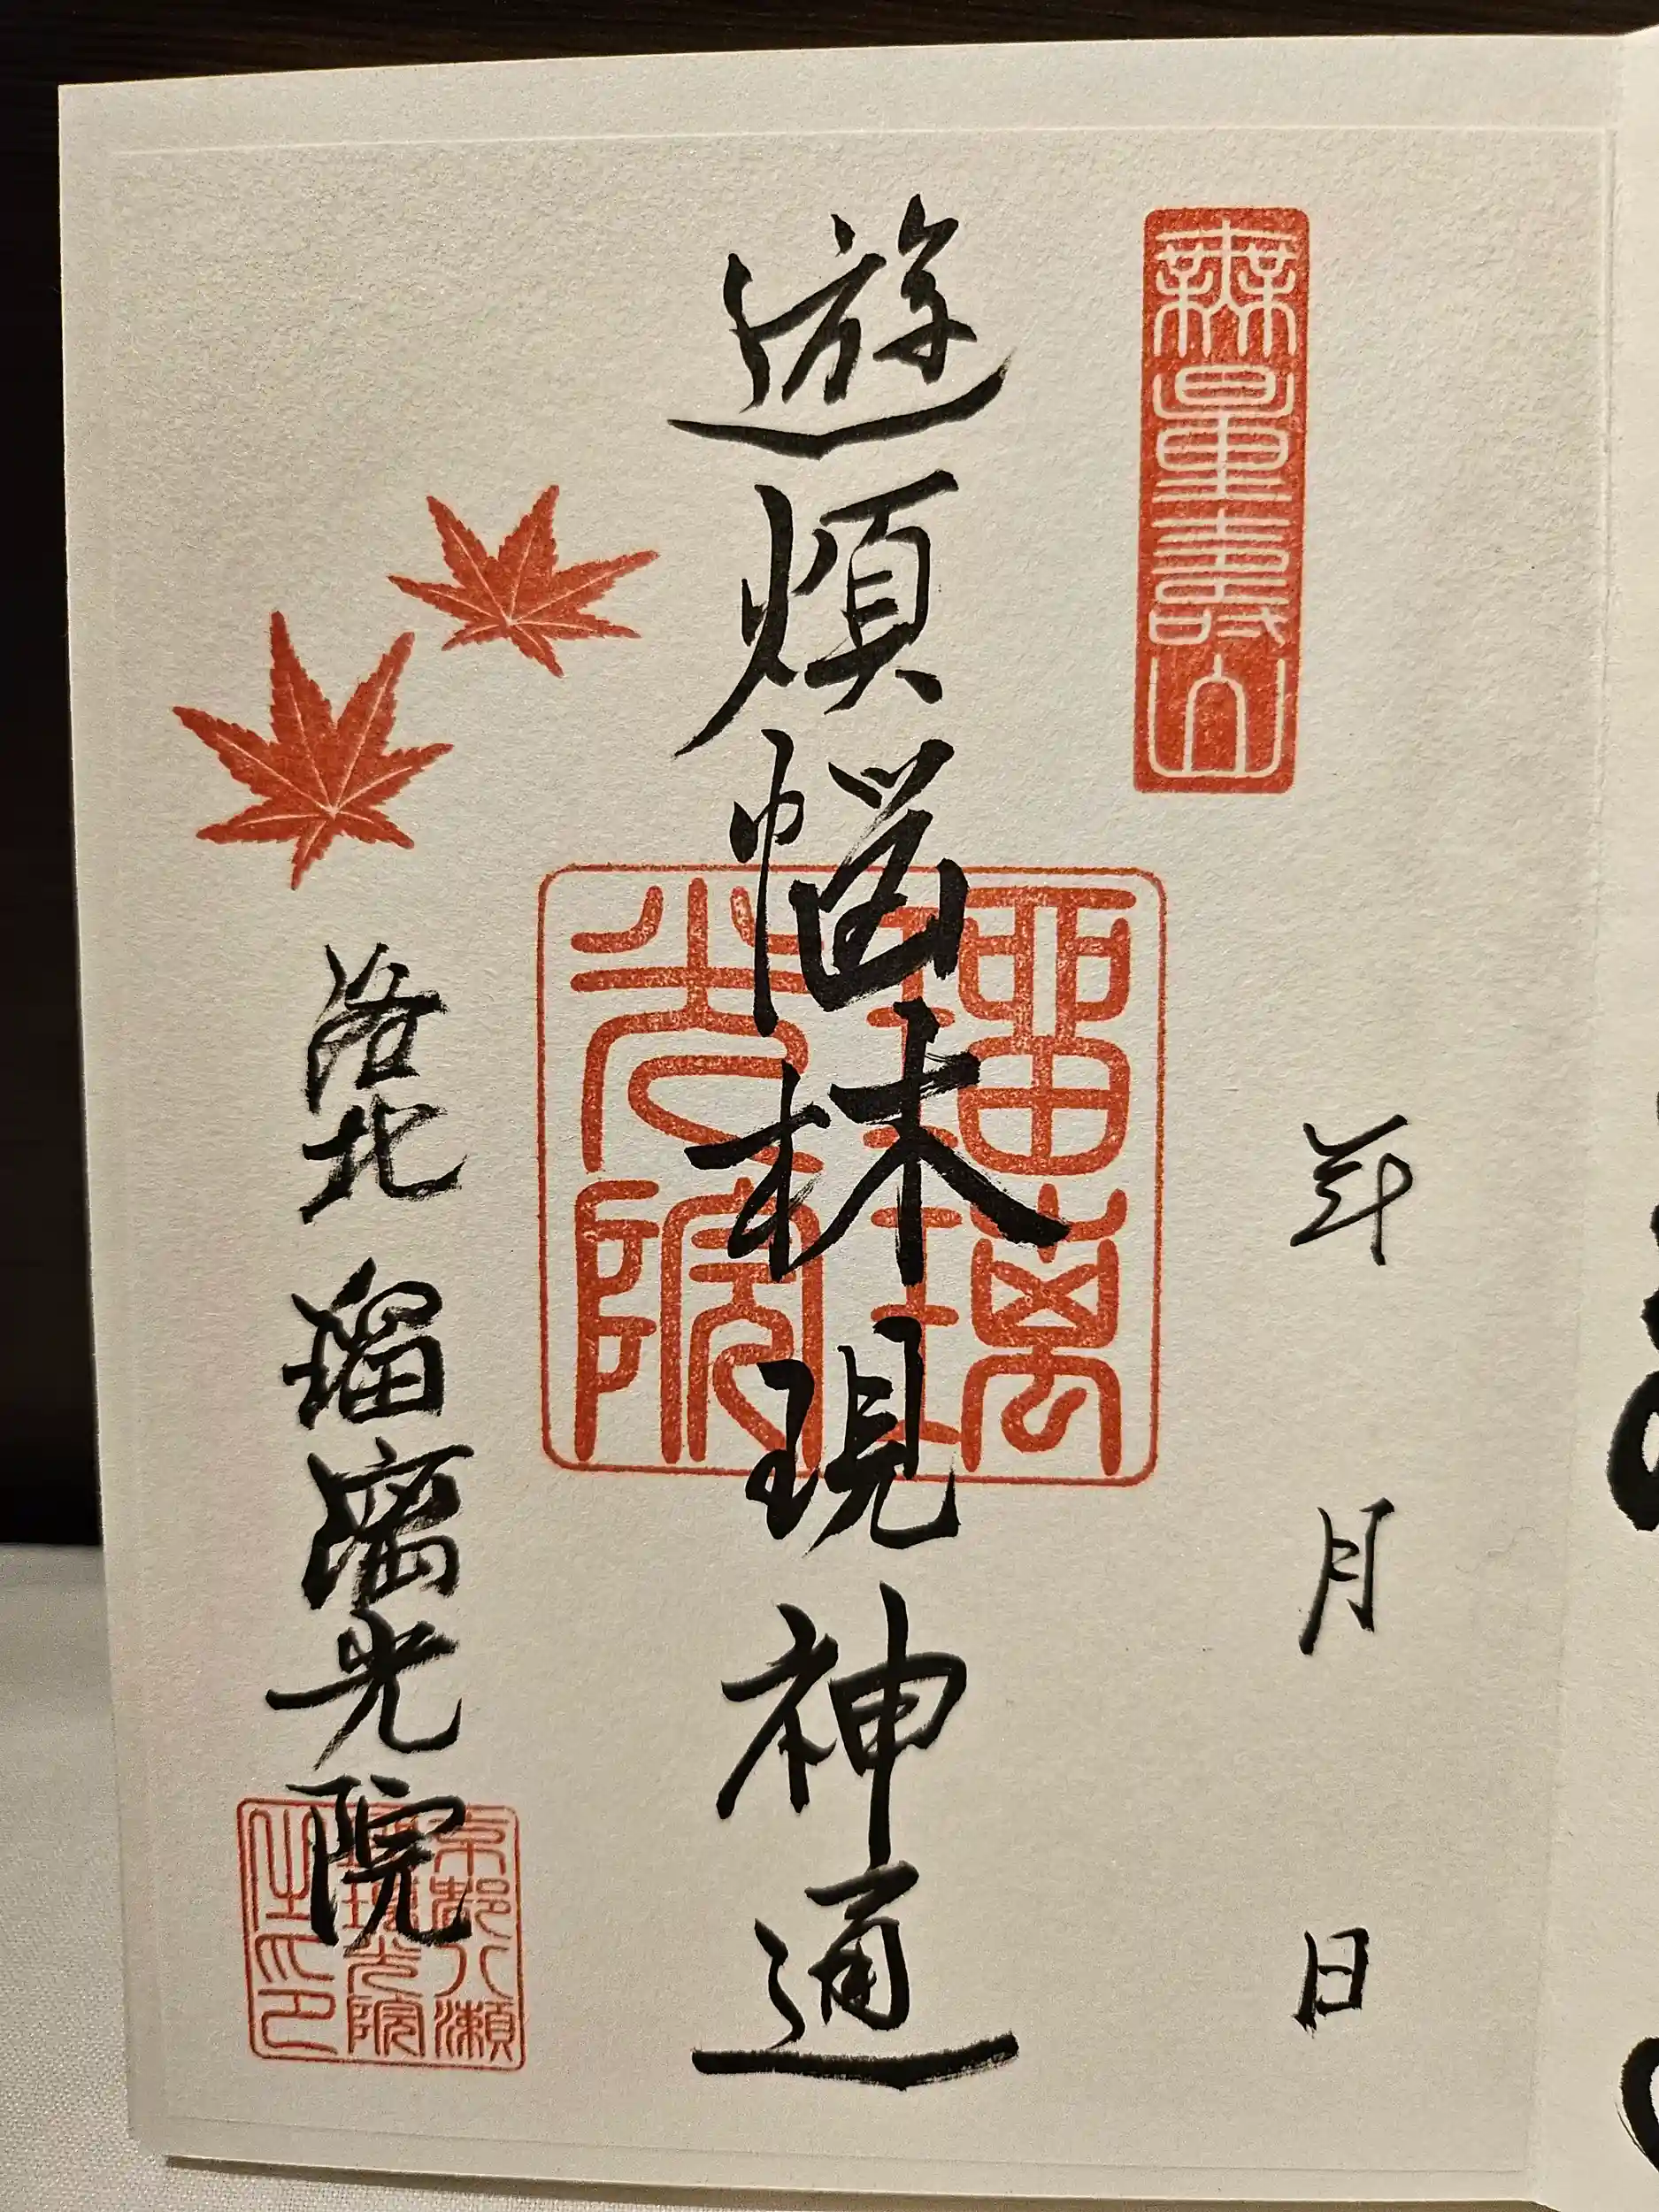 無量壽山
年 月 日
遊煩悩林現神通
瑠璃光院
洛北 瑠璃光院
京都八瀬
瑠璃光院
之印